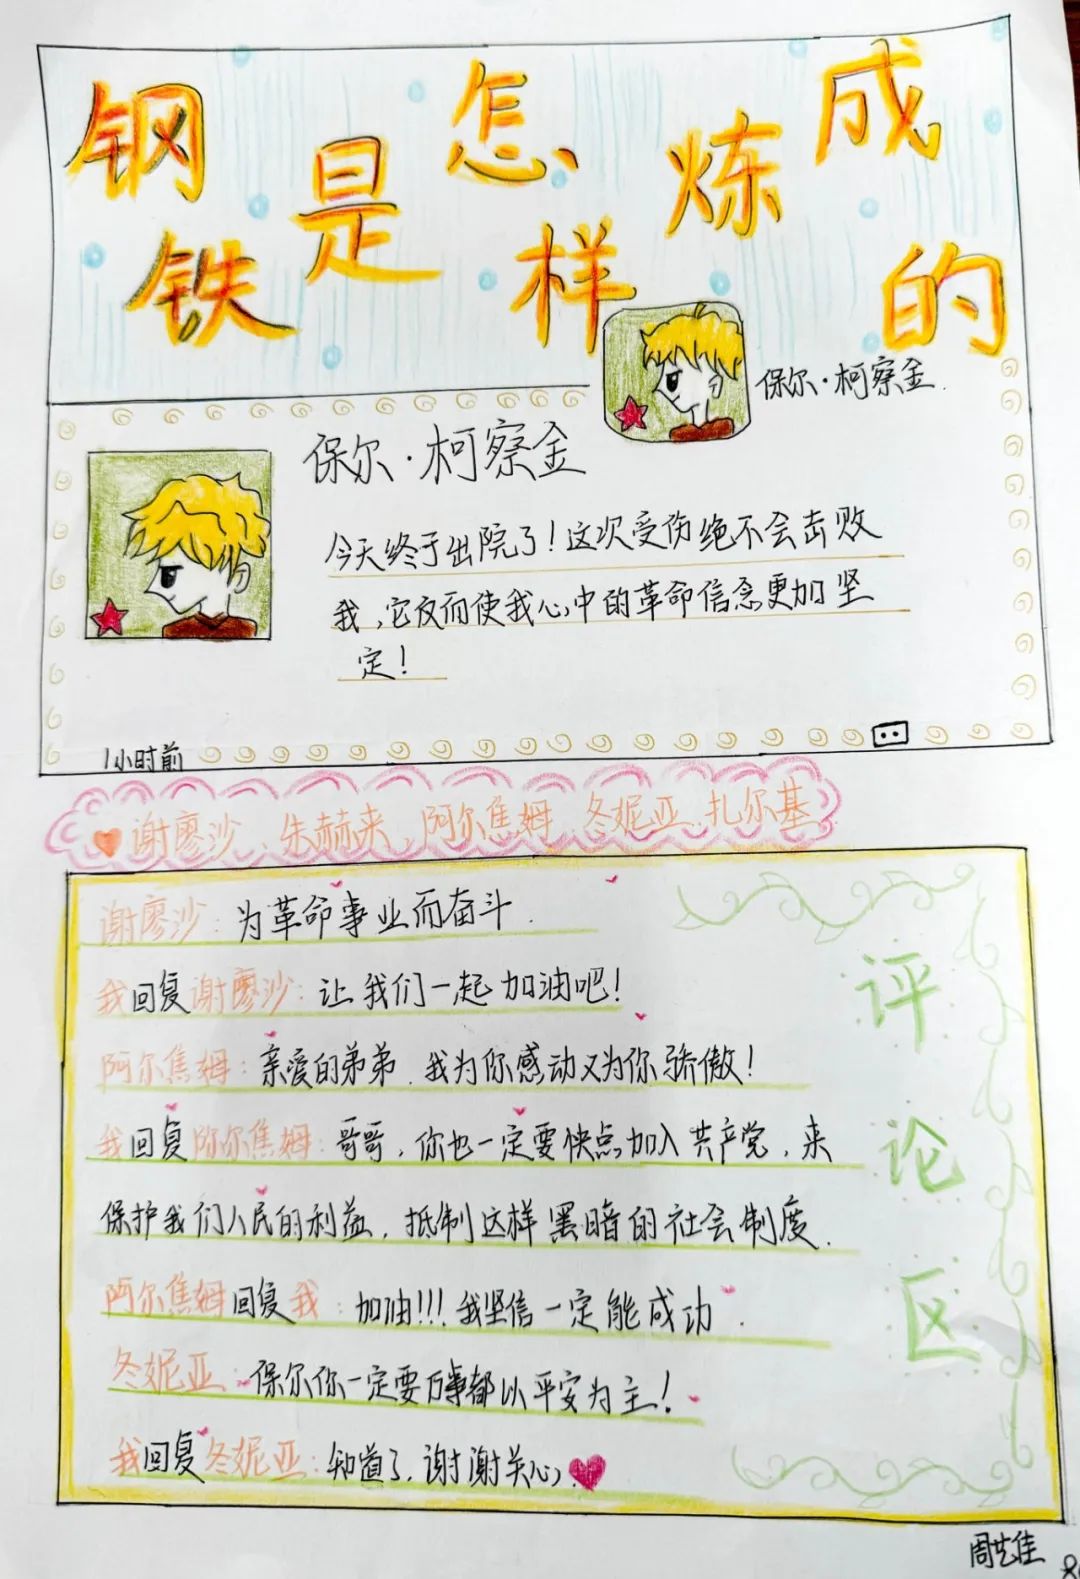 钢铁是怎样炼成的
保尔·柯察金
保尔·柯察金
今天终于出院了！这次受伤绝不会击败
我，它反而使我心中的革命信念更加坚
定！
1小时前
谢廖沙、朱赫来、阿尔焦姆、冬妮亚、扎尔基
评论区
谢廖沙：为革命事业而奋斗.
我回复谢廖沙：让我们一起加油吧！
阿尔焦姆：亲爱的弟弟.我为你感动又为你骄傲！
我回复阿尔焦姆：哥哥，你也一定要快点加入共产党，来
保护我们人民的利益，抵制这样黑暗的社会制度.
阿尔焦姆回复我：加油!!!我坚信一定能成功.
冬妮亚：保尔你一定要万事都以平安为主！
我回复冬妮亚：知道了，谢谢关心
周艺佳